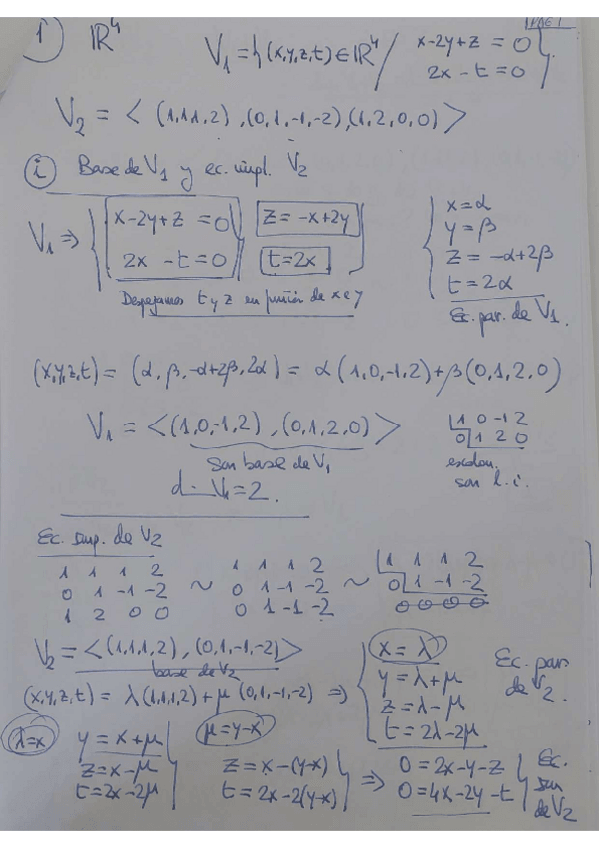 PAG 1
1) ℝ⁴ V₁ = { (x,y,z,t) ∈ ℝ⁴ / x-2y+z = 0
2x - t = 0 }
V₂ = < (1,1,1,2), (0,1,-1,-2), (1,2,0,0) >
i) Base de V₁ y ec. impl. V₂
V₁ ⇒ { x-2y+z = 0 z = -x+2y
2x - t = 0 t = 2x
Despejamos t y z en función de x e y
x = α
y = β
z = -α+2β
t = 2α
Ec. par. de V₁.
(x,y,z,t) = (α, β, -α+2β, 2α) = α(1,0,-1,2) + β(0,1,2,0)
V₁ = < (1,0,-1,2), (0,1,2,0) >
son base de V₁
1 0 -1 2
0 1 2 0
escalon.
son l.i.
V₁ = 2.
Ec. imp. de V₂
1 1 1 2 ~ 1 1 1 2 ~ 1 1 1 2
0 1 -1 -2 0 1 -1 -2 0 1 -1 -2
1 2 0 0 0 1 -1 -2 0 0 0 0
V₂ = < (1,1,1,2), (0,1,-1,-2) >
base de V₂
(x,y,z,t) = λ(1,1,1,2) + μ(0,1,-1,-2) ⇒
x = λ
y = λ+μ
z = λ-μ
t = 2λ-2μ
Ec. par
de V₂.
λ=x y = x+μ μ=y-x
z = x-μ z = x-(y-x) ⇒ 0 = 2x-y-z
t = 2x-2μ t = 2x-2(y-x) 0 = 4x-2y-t
Ec.
de V₂